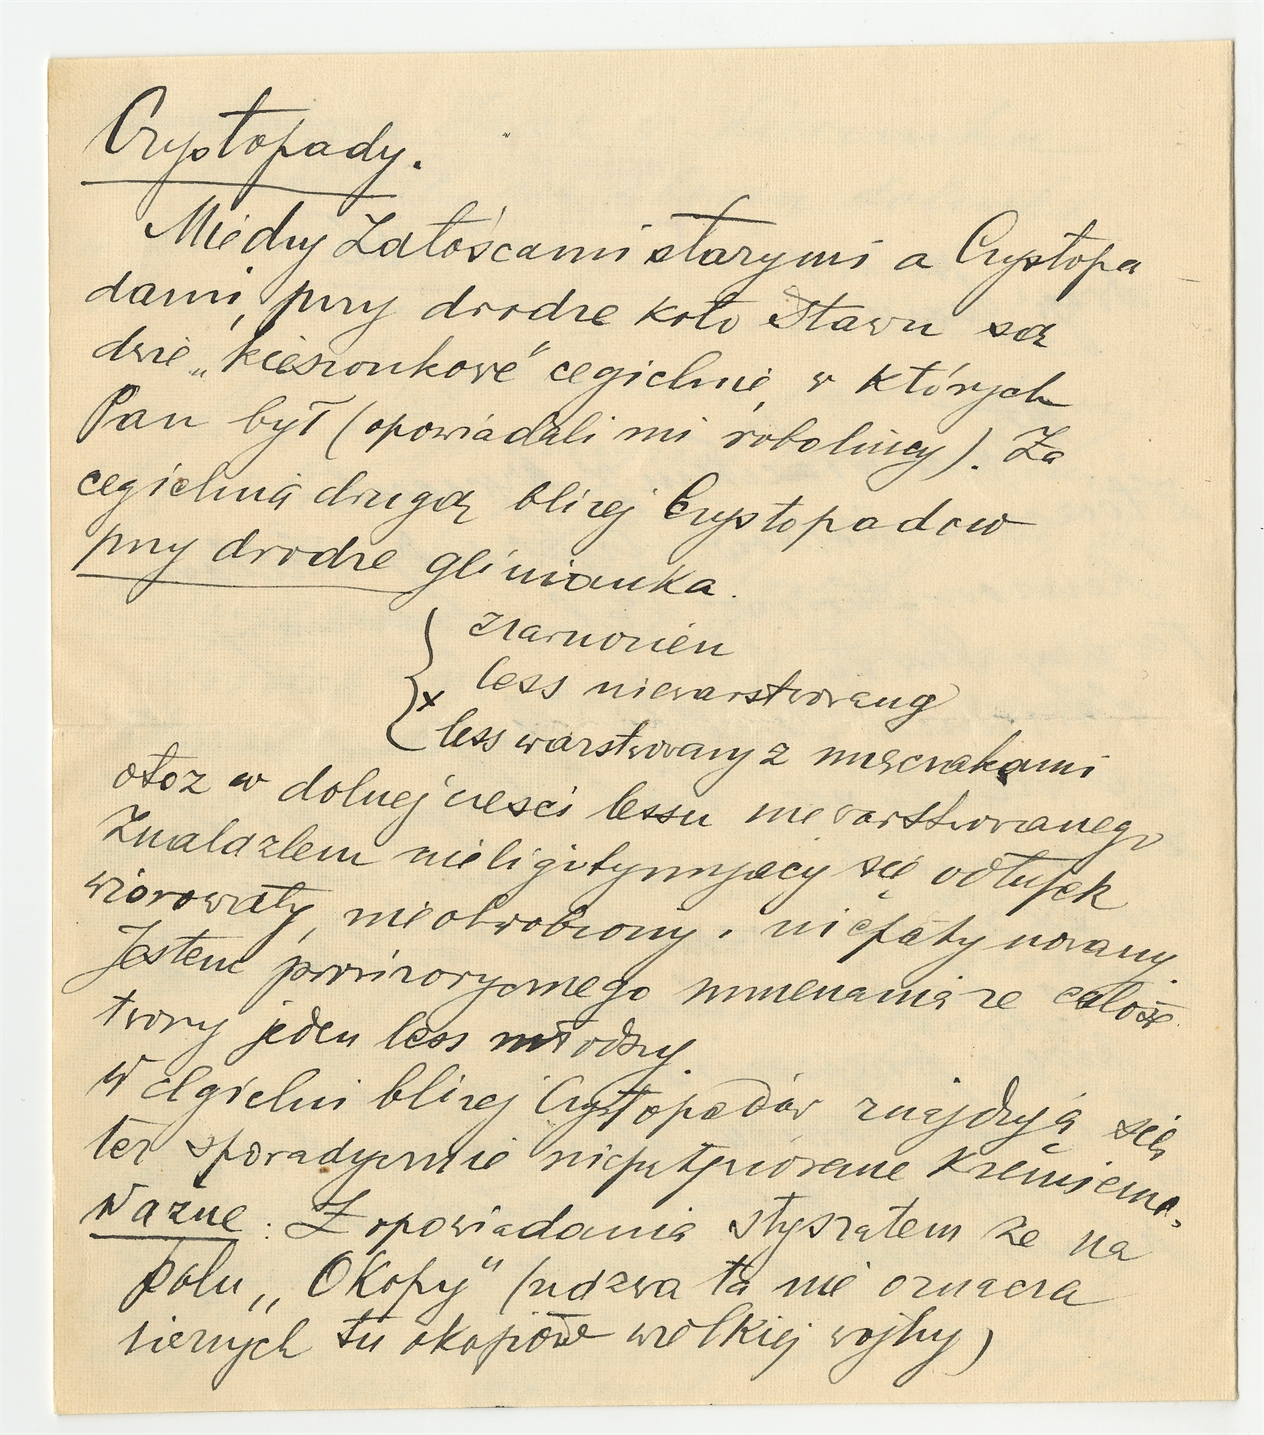 Czystopady.
Między Załoścami starymi a Czystopa
dami, przy drodze koło Stawu są
dwie „kieszonkowe" cegielnie, w których
Pan był (opowiadali mi robotnicy). Za
cegielnią drugą bliżej Czystopadow
przy drodze glinianka.
czarnoziem
less niewarstwowany
x less warstwowany z mięczakami
otoz w dolnej części lessu niewarstwowanego
Znalazlem nieligitymujący się odłupek
wiorowaty, nieobrobiony, niepatynowany
Jestem prowizorycznego mniemania ze całość
tworzy jeden less młodszy
W cegielni bliżej Czystopadów znajdują się
też sporadycznie niepatynowane Krzemienie.
Ważne: Z opowiadania słyszałem ze na
polu „Okopy" (nazwa ta nie oznacza
licznych tu okopów wielkiej wojny)